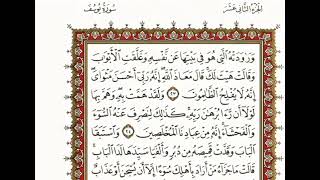 الجزء الثاني عشر
سورة يوسف
وَرَاوَدَتْهُ الَّتِي هُوَ فِي بَيْتِهَا عَن نَّفْسِهِ وَغَلَّقَتِ الْأَبْوَابَ
وَقَالَتْ هَيْتَ لَكَ قَالَ مَعَاذَ اللَّهِ إِنَّهُ رَبِّي أَحْسَنَ مَثْوَايَ
إِنَّهُ لَا يُفْلِحُ الظَّالِمُونَ ٢٣ وَلَقَدْ هَمَّتْ بِهِ وَهَمَّ بِهَا
لَوْلَا أَن رَّأَىٰ بُرْهَانَ رَبِّهِ كَذَٰلِكَ لِنَصْرِفَ عَنْهُ السُّوءَ
وَالْفَحْشَاءَ إِنَّهُ مِنْ عِبَادِنَا الْمُخْلَصِينَ ٢٤ وَاسْتَبَقَا
الْبَابَ وَقَدَّتْ قَمِيصَهُ مِن دُبُرٍ وَأَلْفَيَا سَيِّدَهَا لَدَا الْبَابِ
قَالَتْ مَا جَزَاءُ مَنْ أَرَادَ بِأَهْلِكَ سُوءًا إِلَّا أَن يُسْجَنَ أَوْ عَذَابٌ